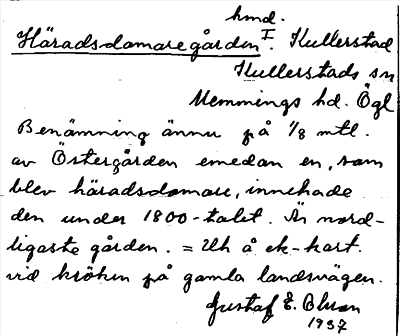 hmd.
Häradsdomaregården I. Kullerstad
Kullerstads sn
Memmings hd. Ögl
Benämning ännu på 1/8 mtl.
av Östergården emedan en, som
blev häradsdomare, innehade
den under 1800-talet. Är nord-
ligaste gården. = Uh å ek-kart.
vid kröken på gamla landsvägen.
Gustaf E. Olson
1937